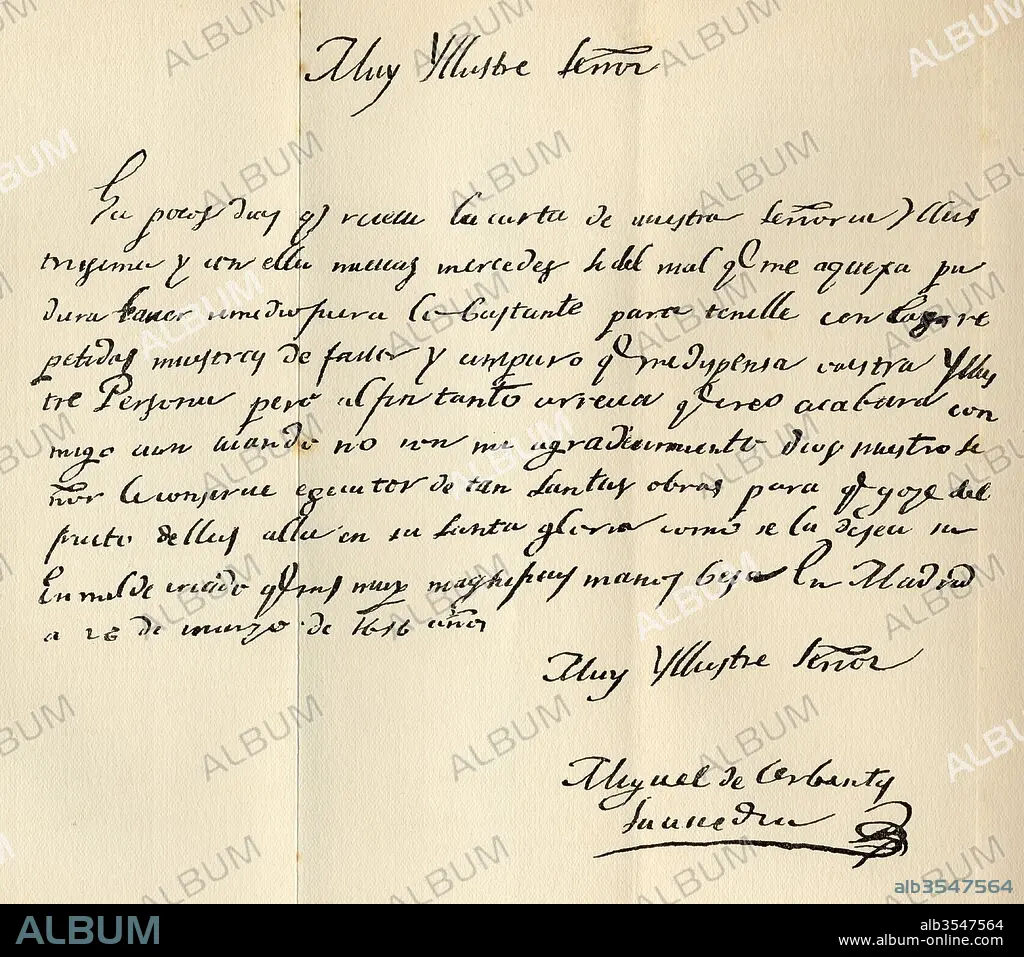 Muy Yllustre Señor
Ha pocos dias q̃ recevi la carta de vuestra Señoria Yllus
trisima y con ella nuevas mercedes si del mal q̃ me aquexa pu
diera haver remedio fuera lo bastante para tenelle con las re
petidas muestras de favor y amparo q̃ me dispensa vuestra Yllus
tre Persona pero al fin tanto arrecia q̃ creo acabara con
migo aun cuando no con mi agradecimiento dios nuestro se
ñor le conserve egecutor de tan santas obras para q̃ goze del
fruto dellas alla en su santa gloria como se la desea su
humilde criado q̃ sus muy magnificas manos besa En Madrid
a 26 de marzo de 1616 años
Muy Yllustre Señor
Miguel de Cerbantes
Saavedra
ALBUM
alb3547564
ALBUM
alb3547564
www.album-online.com